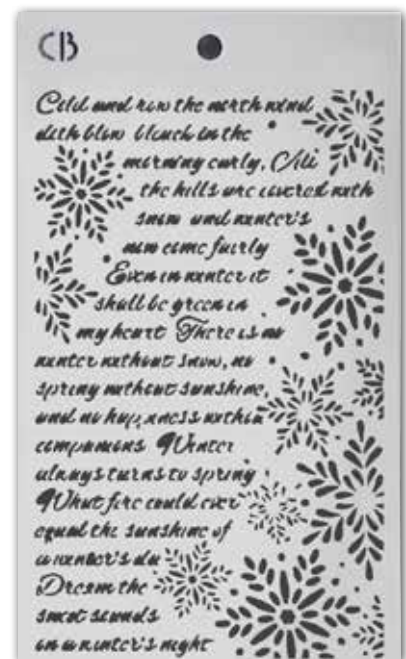 CB
Cold and raw the north wind
doth blow bleak in the
morning early, All
the hills are covered with
snow and winter's
now come fairly
Even in winter it
shall be green in
my heart There is no
winter without snow, no
spring without sunshine,
and no happiness without
companions Winter
always turns to spring
What fire could ever
equal the sunshine of
a winter's da
Dream the
sweet sounds
on a winter's night